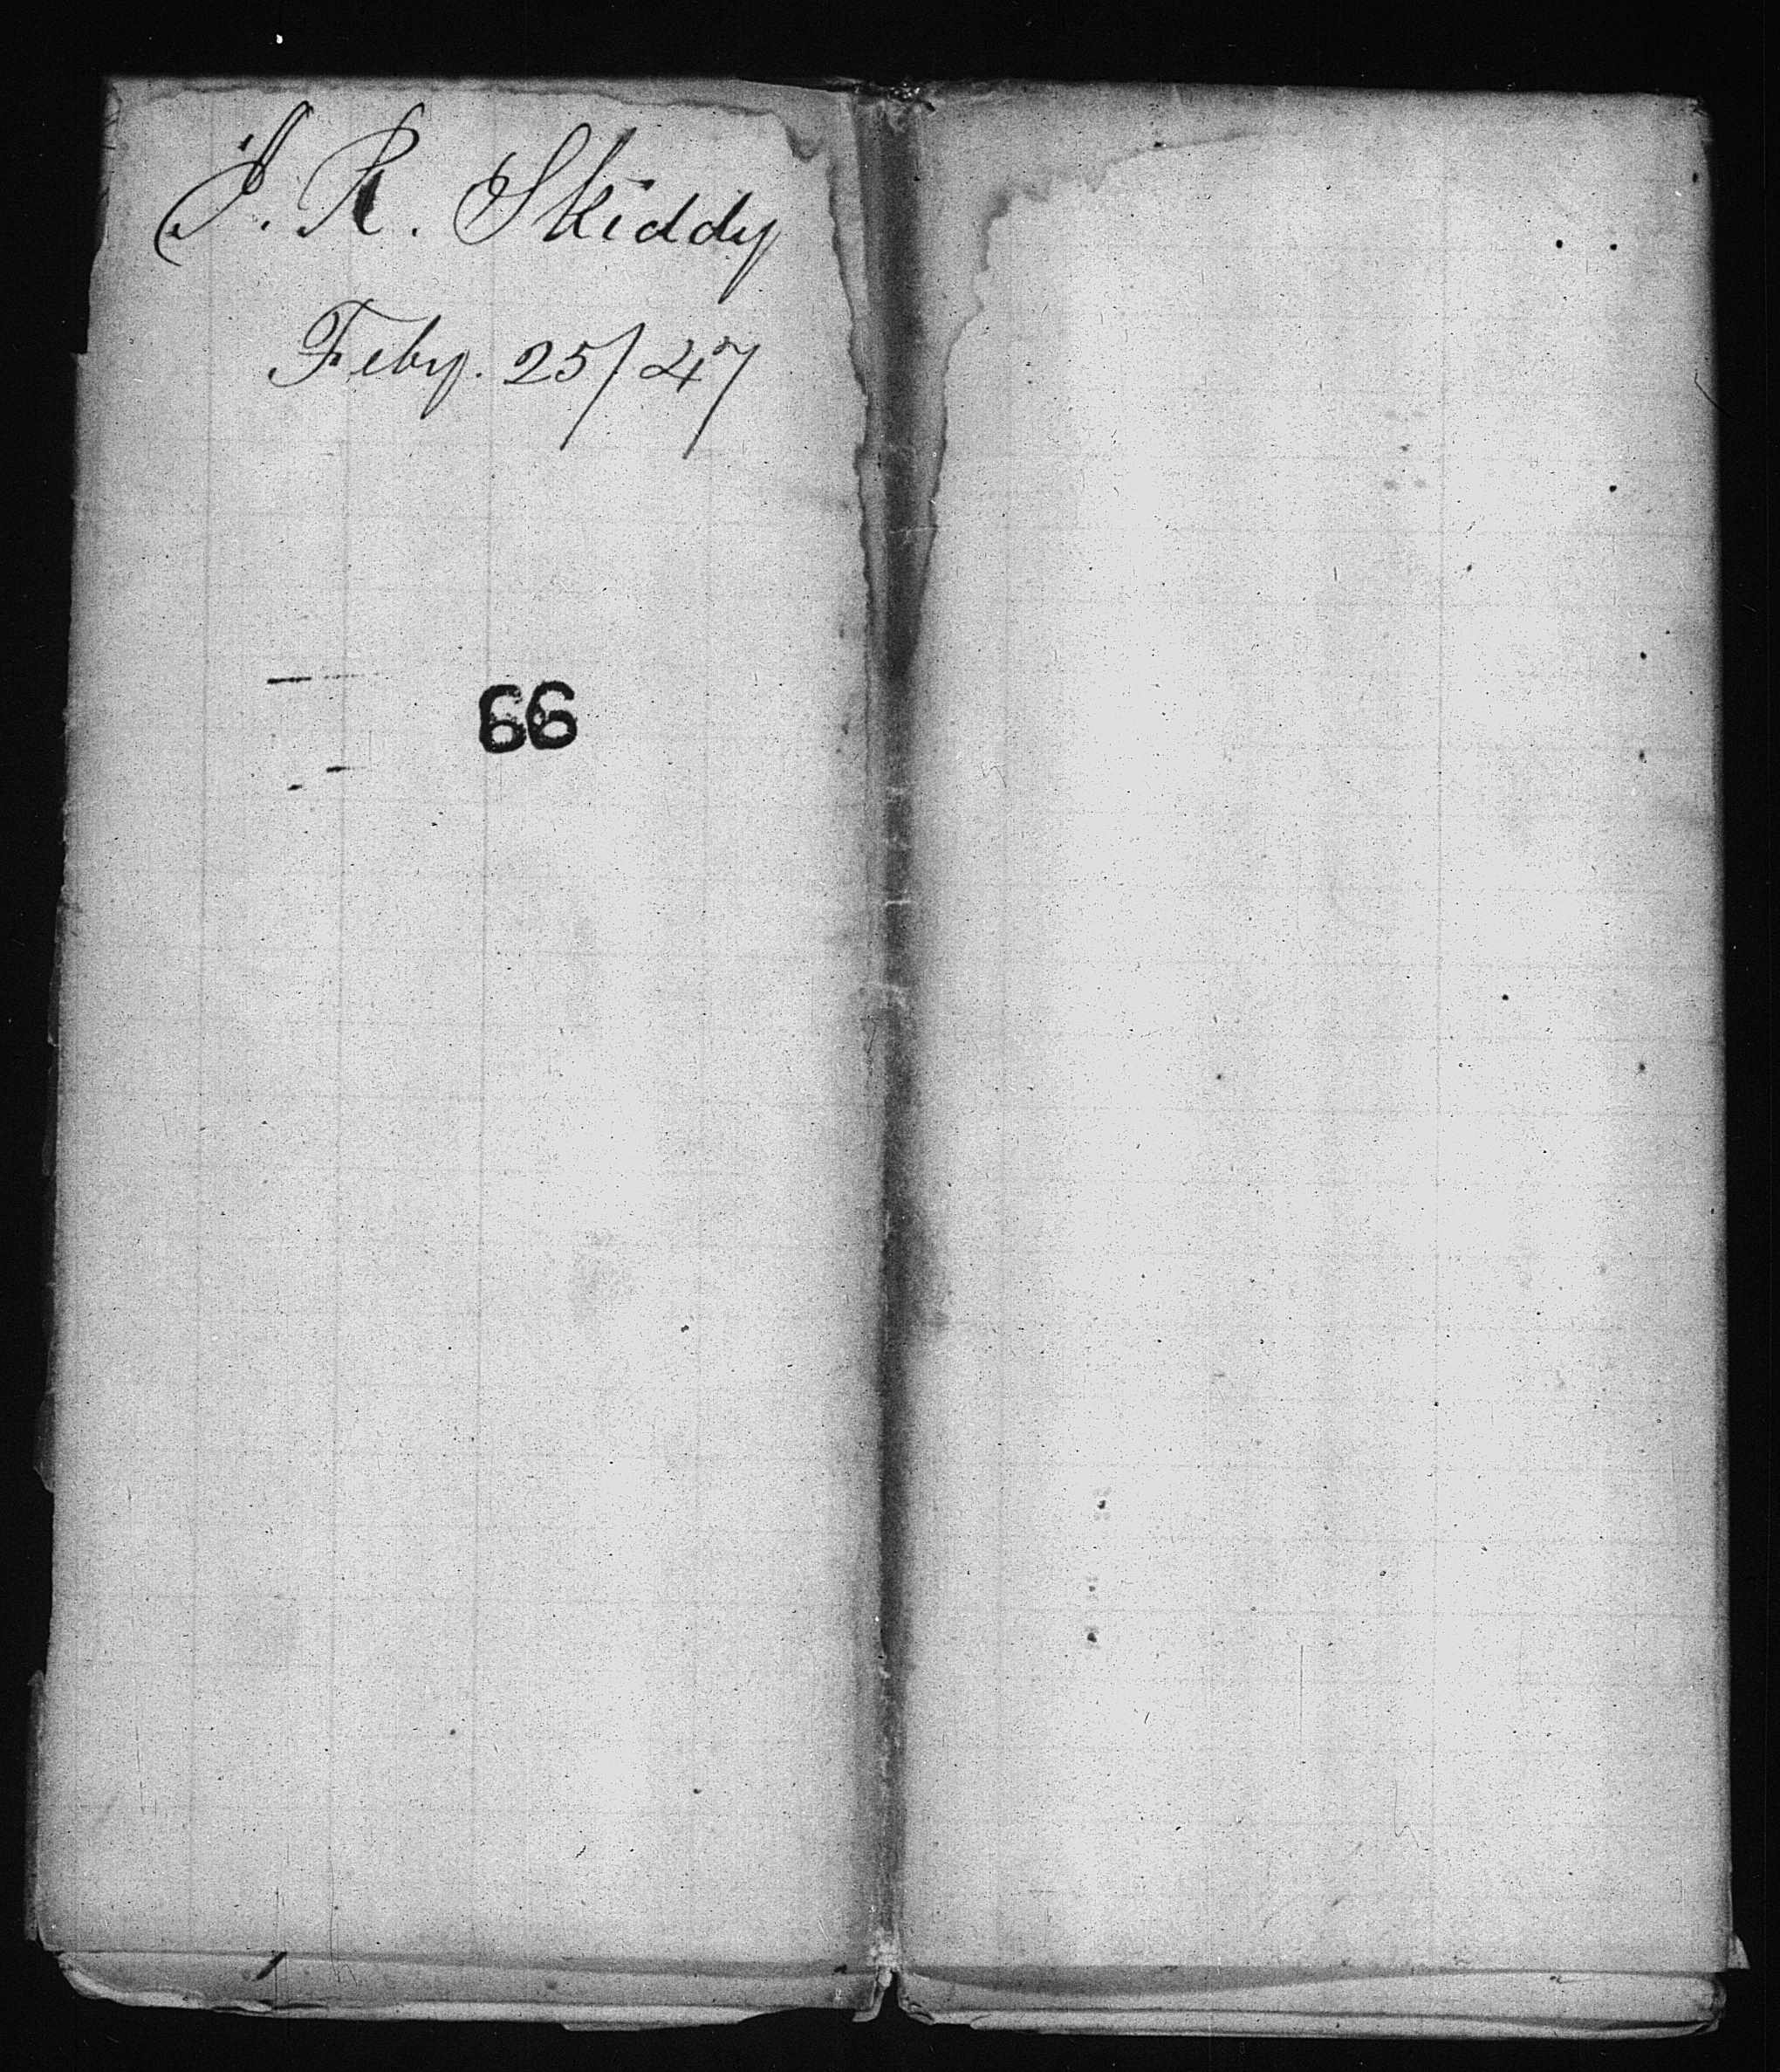 J. R. Skiddy
Feby. 25/47
66